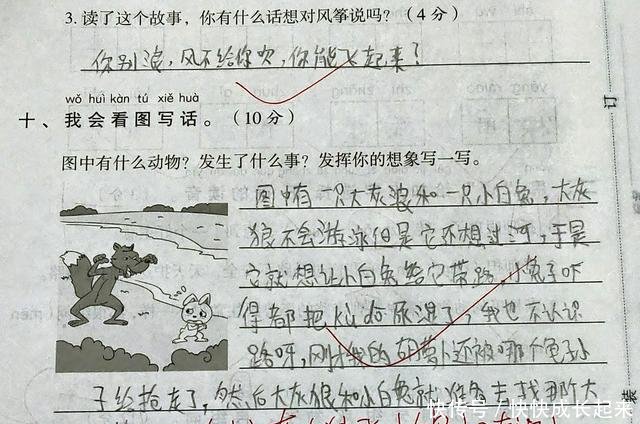 3. 读了这个故事，你有什么话想对风筝说吗？（4分）
你别浪，风不给你吹，你能飞起来？
wǒ huì kàn tú xiě huà
十、我会看图写话。（10分）
图中有什么动物？发生了什么事？发挥你的想象写一写。
图中有一只大灰浪和一只小白兔，大灰
狼不会游泳但是它还想过河，于是
它就想让小白兔给它带路，小兔子吓
得都把kù dōu尿湿了，我也不认识
路呀，刚才我的胡萝卜还被哪个龟孙
子给抢走了，然后大灰狼和小白兔就准备去找那个大
订
装
快传号／快快成长起来